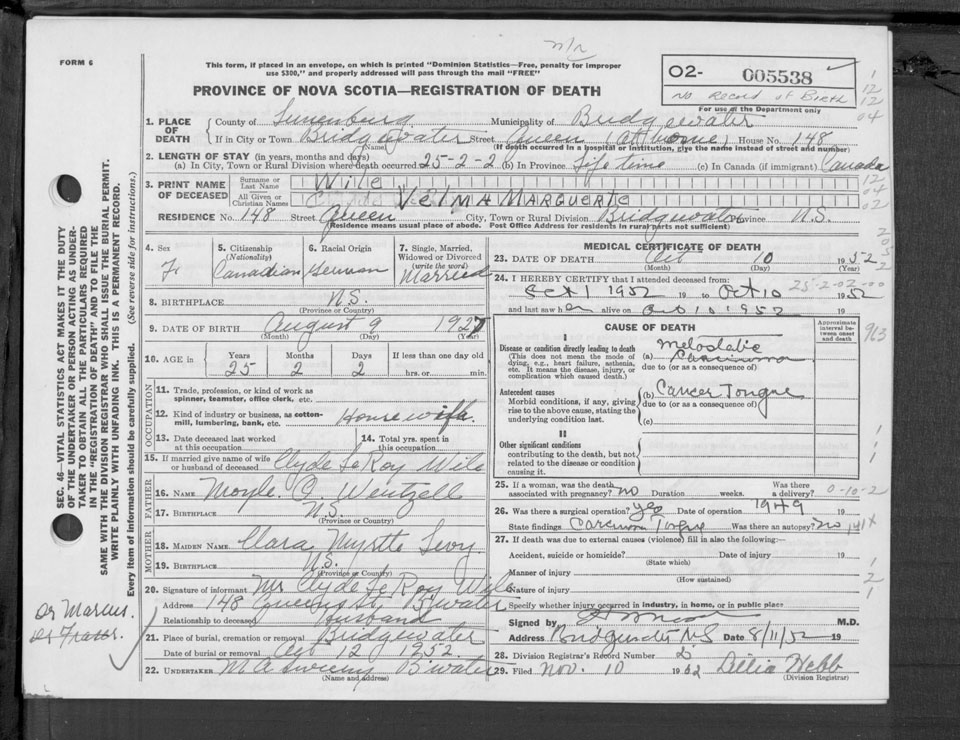 FORM 6
This form, if placed in an envelope, on which is printed "Dominion Statistics—Free, penalty for improper
use $300," and properly addressed will pass through the mail "FREE"
PROVINCE OF NOVA SCOTIA—REGISTRATION OF DEATH
O2- 005538
No Record of Birth
For use of the Department only
1. PLACE OF DEATH
County of Lunenburg Municipality of Bridgewater
If in City or Town Bridgewater Street Queen (At home) House No. 148
(If death occurred in a hospital or institution, give the name instead of street and number)
2. LENGTH OF STAY (in years, months and days)
(a) In City, Town or Rural Division where death occurred 25-2-2 (b) In Province Life time (c) In Canada (if immigrant) Canada
3. PRINT NAME OF DECEASED
Surname or Last Name Wile
All Given or Christian Names VELMA MARGUERITE
RESIDENCE No. 148 Street Queen City, Town or Rural Division Bridgewater Province N.S.
(Residence means usual place of abode. Post Office Address for residents in rural parts not sufficient)
4. Sex F.
5. Citizenship (Nationality) Canadian
6. Racial Origin German
7. Single, Married, Widowed or Divorced (write the word) Married
8. BIRTHPLACE N.S.
(Province or Country)
9. DATE OF BIRTH August 9 1927
(Month) (Day) (Year)
10. AGE in Years 25 Months 2 Days 2 If less than one day old
hrs. or min.
OCCUPATION
11. Trade, profession, or kind of work as
spinner, teamster, office clerk, etc.
12. Kind of industry or business, as cotton-
mill, lumbering, bank, etc. Housewife.
13. Date deceased last worked at this occupation
14. Total yrs. spent in this occupation
15. If married give name of wife
or husband of deceased Clyde LeRoy Wile
FATHER
16. NAME Moyle O Wentzell
17. BIRTHPLACE N.S.
(Province or Country)
MOTHER
18. MAIDEN NAME Clara Myrtle Levy
19. BIRTHPLACE N.S.
(Province or Country)
20. Signature of informant Mr Clyde Le Roy Wile
Address 148 Queen St, B'water
Relationship to deceased Husband
21. Place of burial, cremation or removal Bridgewater
Date of burial or removal Oct 12 1952.
22. UNDERTAKER M A Sweeny B'water
(Name and address)
MEDICAL CERTIFICATE OF DEATH
23. DATE OF DEATH Oct 10 1952
(Month) (Day) (Year)
24. I HEREBY CERTIFY that I attended deceased from:
Oct 1 1952 19 to Oct 10 1952
and last saw her alive on Oct 10 1952
25-2-02-00
CAUSE OF DEATH
Approximate interval between onset and death
I
Disease or condition directly leading to death
(This does not mean the mode of
dying, e.g., heart failure, asthenia,
etc. It means the disease, injury, or
complication which caused death.)
(a) Metastatic Carcinoma
due to (or as a consequence of)
Antecedent causes
Morbid conditions, if any, giving
rise to the above cause, stating the
underlying condition last.
(b) Cancer Tongue
due to (or as a consequence of)
(c)
II
Other significant conditions
contributing to the death, but not
related to the disease or condition
causing it.
25. If a woman, was the death
associated with pregnancy? no Duration weeks. Was there a delivery?
0-10-2
26. Was there a surgical operation? yes Date of operation 1949 19
State findings Carcinoma Tongue Was there an autopsy? no
27. If death was due to external causes (violence) fill in also the following:—
Accident, suicide or homicide? Date of injury 19
(State which)
Manner of injury
(How sustained)
Nature of injury
Specify whether injury occurred in industry, in home, or in public place
Signed by M.D.
Address Bridgewater NS Date 8/11/52 19
28. Division Registrar's Record Number
29. Filed Nov. 10 1952 Lillia Webb
(Division Registrar)
SEC. 46—VITAL STATISTICS ACT MAKES IT THE DUTY
OF THE UNDERTAKER OR PERSON ACTING AS UNDER-
TAKER TO OBTAIN ALL THE PARTICULARS REQUIRED
IN THE "REGISTRATION OF DEATH" AND TO FILE THE
SAME WITH THE DIVISION REGISTRAR WHO SHALL ISSUE THE BURIAL PERMIT.
WRITE PLAINLY WITH UNFADING INK. THIS IS A PERMANENT RECORD.
Every item of information should be carefully supplied. (See reverse side for instructions.)
Dr Marcus.
Dr Fraser.